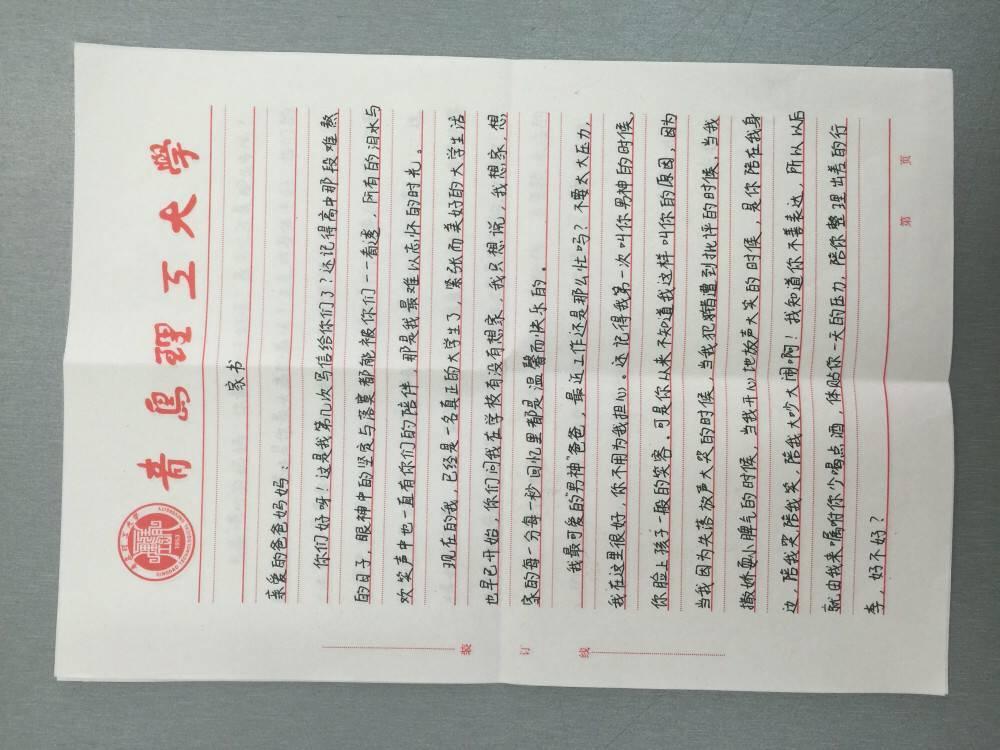 青岛理工大学
家书
亲爱的爸爸妈妈：
你们好呀！这是我第几次写信给你们了？还记得高中那段难熬
的日子，眼神中的坚定与落寞都能被你们一一看透，所有的泪水与
欢笑声中也一直有你们的陪伴，那是我最难以忘怀的时光。
现在的我，已经是一名真正的大学生了，紧张而美好的大学生活
也早已开始，你们问我在学校有没有想家，我只想说，我想家，想
家的每一分每一秒回忆里都是温馨而快乐的。
我最可爱的“男神”爸爸，最近工作还是那么忙吗？不要太大压力，
我在这里很好，你不用为我担心。还记得我第一次叫你男神的时候，
你脸上孩子一般的笑容，可是你从来不知道我这样叫你的原因，因为
当我因为失落放声大哭的时候，当我犯错遭到批评的时候，当我
撒娇耍小脾气的时候，当我开心地放声大笑的时候，是你陪在我身
边，陪我哭陪我笑，陪我大吵大闹啊！我知道你不善表达，所以以后
就由我来嘱咐你少喝点酒，体贴你一天的压力，陪你整理出差的行
李，好不好？
装
订
线
第 页